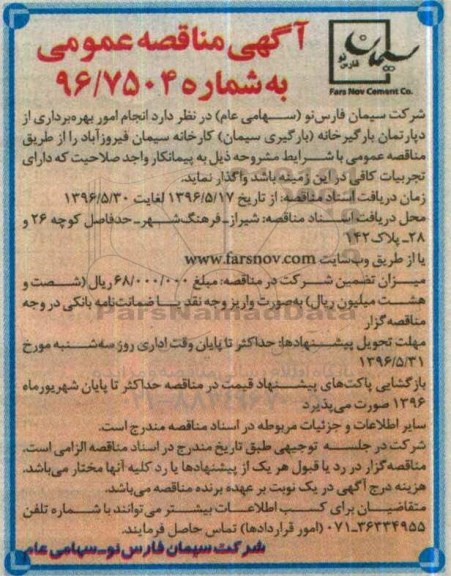 آگهی مناقصه عمومی
به شماره ۹۶/۷۵۰۴
سیمان
فارس نو
Fars Nov Cement Co.
شرکت سیمان فارس‌نو (سهامی عام) در نظر دارد انجام امور بهره‌برداری از
دپارتمان بارگیرخانه (بارگیری سیمان) کارخانه سیمان فیروزآباد را از طریق
مناقصه عمومی با شرایط مشروحه ذیل به پیمانکار واجد صلاحیت که دارای
تجربیات کافی در این زمینه باشد واگذار نماید.
زمان دریافت اسناد مناقصه: از تاریخ ۱۳۹۶/۵/۱۷ لغایت ۱۳۹۶/۵/۳۰
محل دریافت اسناد مناقصه: شیراز_فرهنگ‌شهر_حدفاصل کوچه ۲۶ و
۲۸_پلاک ۱۴۲
یا از طریق وب‌سایت www.farsnov.com
میزان تضمین شرکت در مناقصه: مبلغ ۶۸/۰۰۰/۰۰۰ ریال (شصت و
هشت میلیون ریال) به‌صورت واریز وجه نقد یا ضمانت‌نامه بانکی در وجه
مناقصه‌گزار
مهلت تحویل پیشنهادها: حداکثر تا پایان وقت اداری روز سه‌شنبه مورخ
۱۳۹۶/۵/۳۱
بازگشایی پاکت‌های پیشنهاد قیمت در مناقصه حداکثر تا پایان شهریورماه
۱۳۹۶ صورت می‌پذیرد
سایر اطلاعات و جزئیات مربوطه در اسناد مناقصه مندرج است.
شرکت در جلسه توجیهی طبق تاریخ مندرج در اسناد مناقصه الزامی است.
مناقصه‌گزار در رد یا قبول هر یک از پیشنهادها یا رد کلیه آنها مختار می‌باشد.
هزینه درج آگهی در یک نوبت بر عهده برنده مناقصه می‌باشد.
متقاضیان برای کسب اطلاعات بیشتر می‌توانند با شماره تلفن
۰۷۱-۳۶۳۳۴۹۵۵ (امور قراردادها) تماس حاصل فرمایند.
شرکت سیمان فارس نو_سهامی عام
ParsNamadData